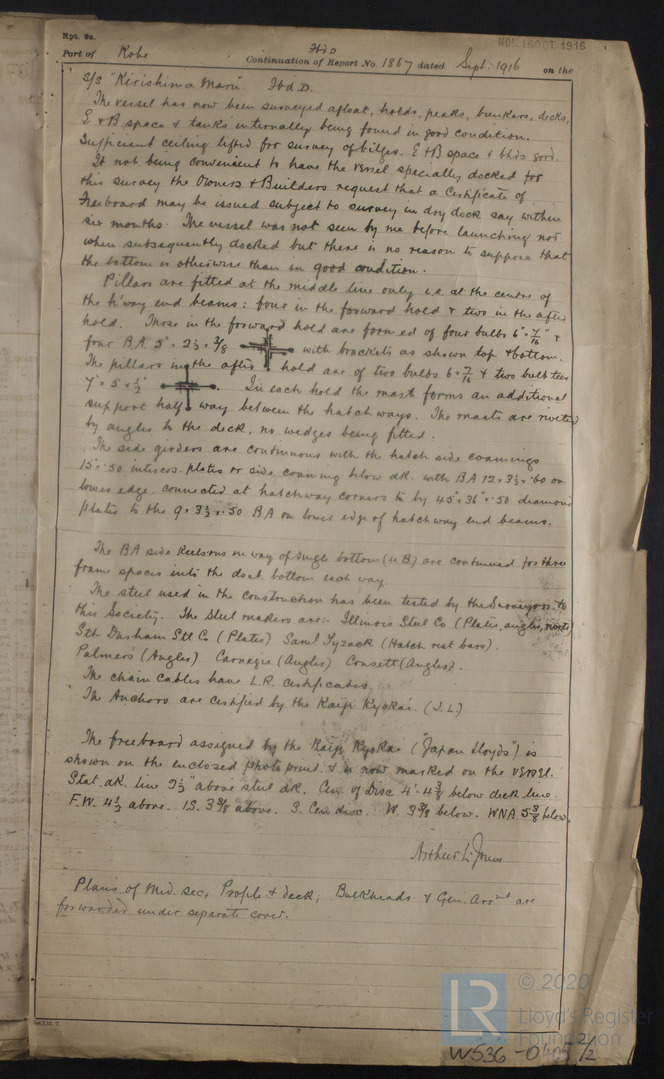 Rpt. 9a.
MON. 16 OCT. 1916
Port of Kobe
Continuation of Report No. 1867 dated Sept. 1916 on the
S/S "Kirishima Maru" Ibd D.
The vessel has now been surveyed afloat, holds, peaks, bunkers, decks,
E & B space & tanks internally being found in good condition.
Sufficient ceiling lifted for survey of bilges. E & B space & bhds good.
It not being convenient to have the vessel specially docked for
this survey the Owners & Builders request that a Certificate of
Freeboard may be issued subject to survey in dry dock say within
six months. The vessel was not seen by me before launching nor
when subsequently docked but there is no reason to suppose that
the bottom is otherwise than in good condition.
Pillars are fitted at the middle line only i.e. at the centre of
the h'way end beams: four in the forward hold & two in the after
hold. Those in the forward hold are formed of four bulbs 6" × 7/16" &
four B.A. 5" × 2½ × 3/8 with brackets as shown top & bottom.
The pillars in the after hold are of two bulbs 6 × 7/16 & two bulb tees
7" × 5" × ½" In each hold the mast forms an additional
support half way between the hatchways. The masts are riveted
by angles to the deck, no wedges being fitted.
The side girders are continuous with the hatch side coamings
15" × .50 intercos. plates or side coaming below dk. with BA 12 × 3½ × .60 on
lower edge. connected at hatchway corners to by 45" × 36" × .50 diamond
plates to the 9 × 3½ × .50 BA on lower edge of hatchway end beams.
The BA side keelsons in way of single bottom (u. B.) are continued for three
frame spaces into the doub. bottom each way
The steel used in the construction has been tested by the Surveyors to
this Society. The steel makers are:- Illinois Steel Co (Plates, angles, rivets)
Sth Durham Stl Co (Plates) Saml Tyzack (Hatch rest bars).
Palmers (Angles) Carnegie (Angles) Consett (Angles).
The chain cables have L.R. certificates
The Anchors are certified by the Kaiji Kyokai. (J.L.)
The freeboard assigned by the Kaiji Kyokai ("Japan Lloyds") is
shown on the enclosed photo print & is now marked on the vessel.
Stat. dk. line 2½" above steel dk. Cen. of Disc 4' 4 3/8 below deck line.
F.W. 4½ above. I.S. 3 3/8 above. S. Cen disc. W. 3 3/8 below. WNA 5 3/8 below.
Arthur L. Jones
Plans of Mid. sec, Profile & deck, Bulkheads & Gen. Arrnt are
forwarded under separate cover.
© 2020
LR
Lloyd's Register
Foundation
W536-0405 2/2